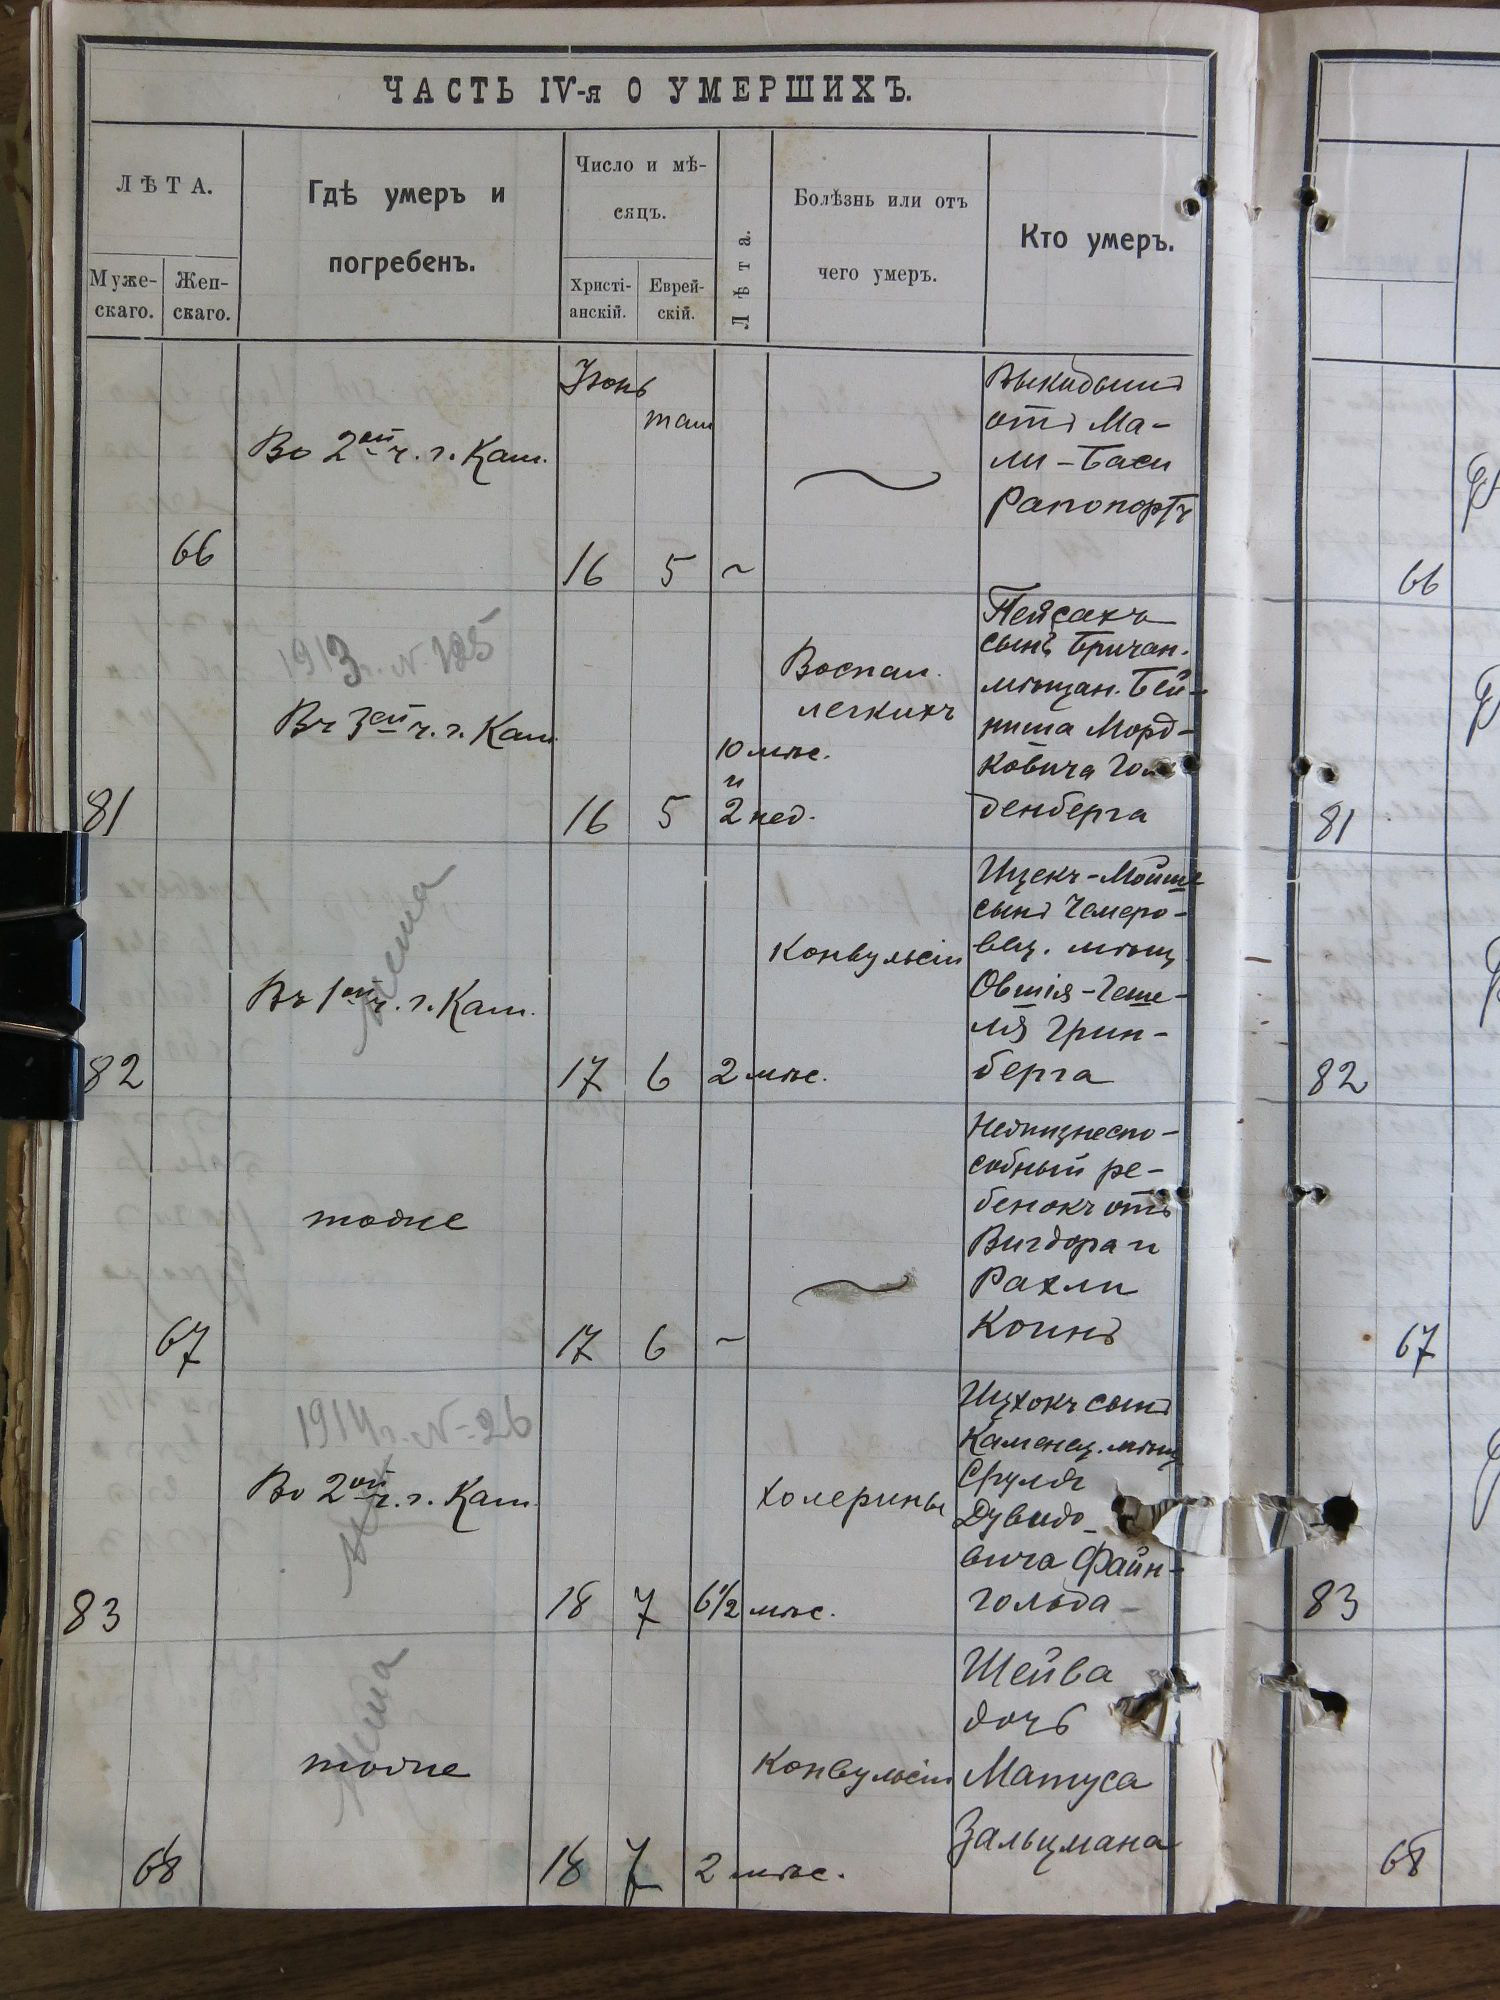 ЧАСТЬ IV-я О УМЕРШИХЪ.
ЛѢТА.
Муже-
скаго.
Жен-
скаго.
Гдѣ умеръ и
погребенъ.
Число и мѣ-
сяцъ.
Христі-
анскій.
Еврей-
скій.
Лѣта.
Болѣзнь или отъ
чего умеръ.
Кто умеръ.
66
Во 2ой ч. г. Кам.
Іюнь
16
там
5
~
Выкидышъ
отъ Ма-
ли-Баси
Рапопортъ
66
81
1913 г. N. 125
Въ 3ей ч. г. Кам.
16
5
10 мѣс.
и
2 нед.
Воспал.
легкихъ
Пейсахъ
сынъ Бричан.
мѣщан. Бей-
ниша Морд-
ковича Голь
денберга
81
82
Въ 1ой ч. г. Кам.
17
6
2 мѣс.
Конвульсіи
Ицекъ-Мойше
сынъ Чемеро-
вец. мѣщ
Овшія-Геше-
ля Грин-
берга
82
67
тоже
17
6
~
Нежизнеспо-
собный ре-
бенокъ отъ
Вигдора и
Рахли
Коинъ
67
83
1914 г. N-26
Во 2ой ч. г. Кам.
18
7
6 1/2 мѣс.
холерины
Ицхокъ сынъ
Каменец. мѣщ
Сруля
Дувидо-
вича Файн-
гольда
83
68
тоже
18
7
2 мѣс.
Конвульсіи
Шейва
дочь
Матуса
Зальцмана
68